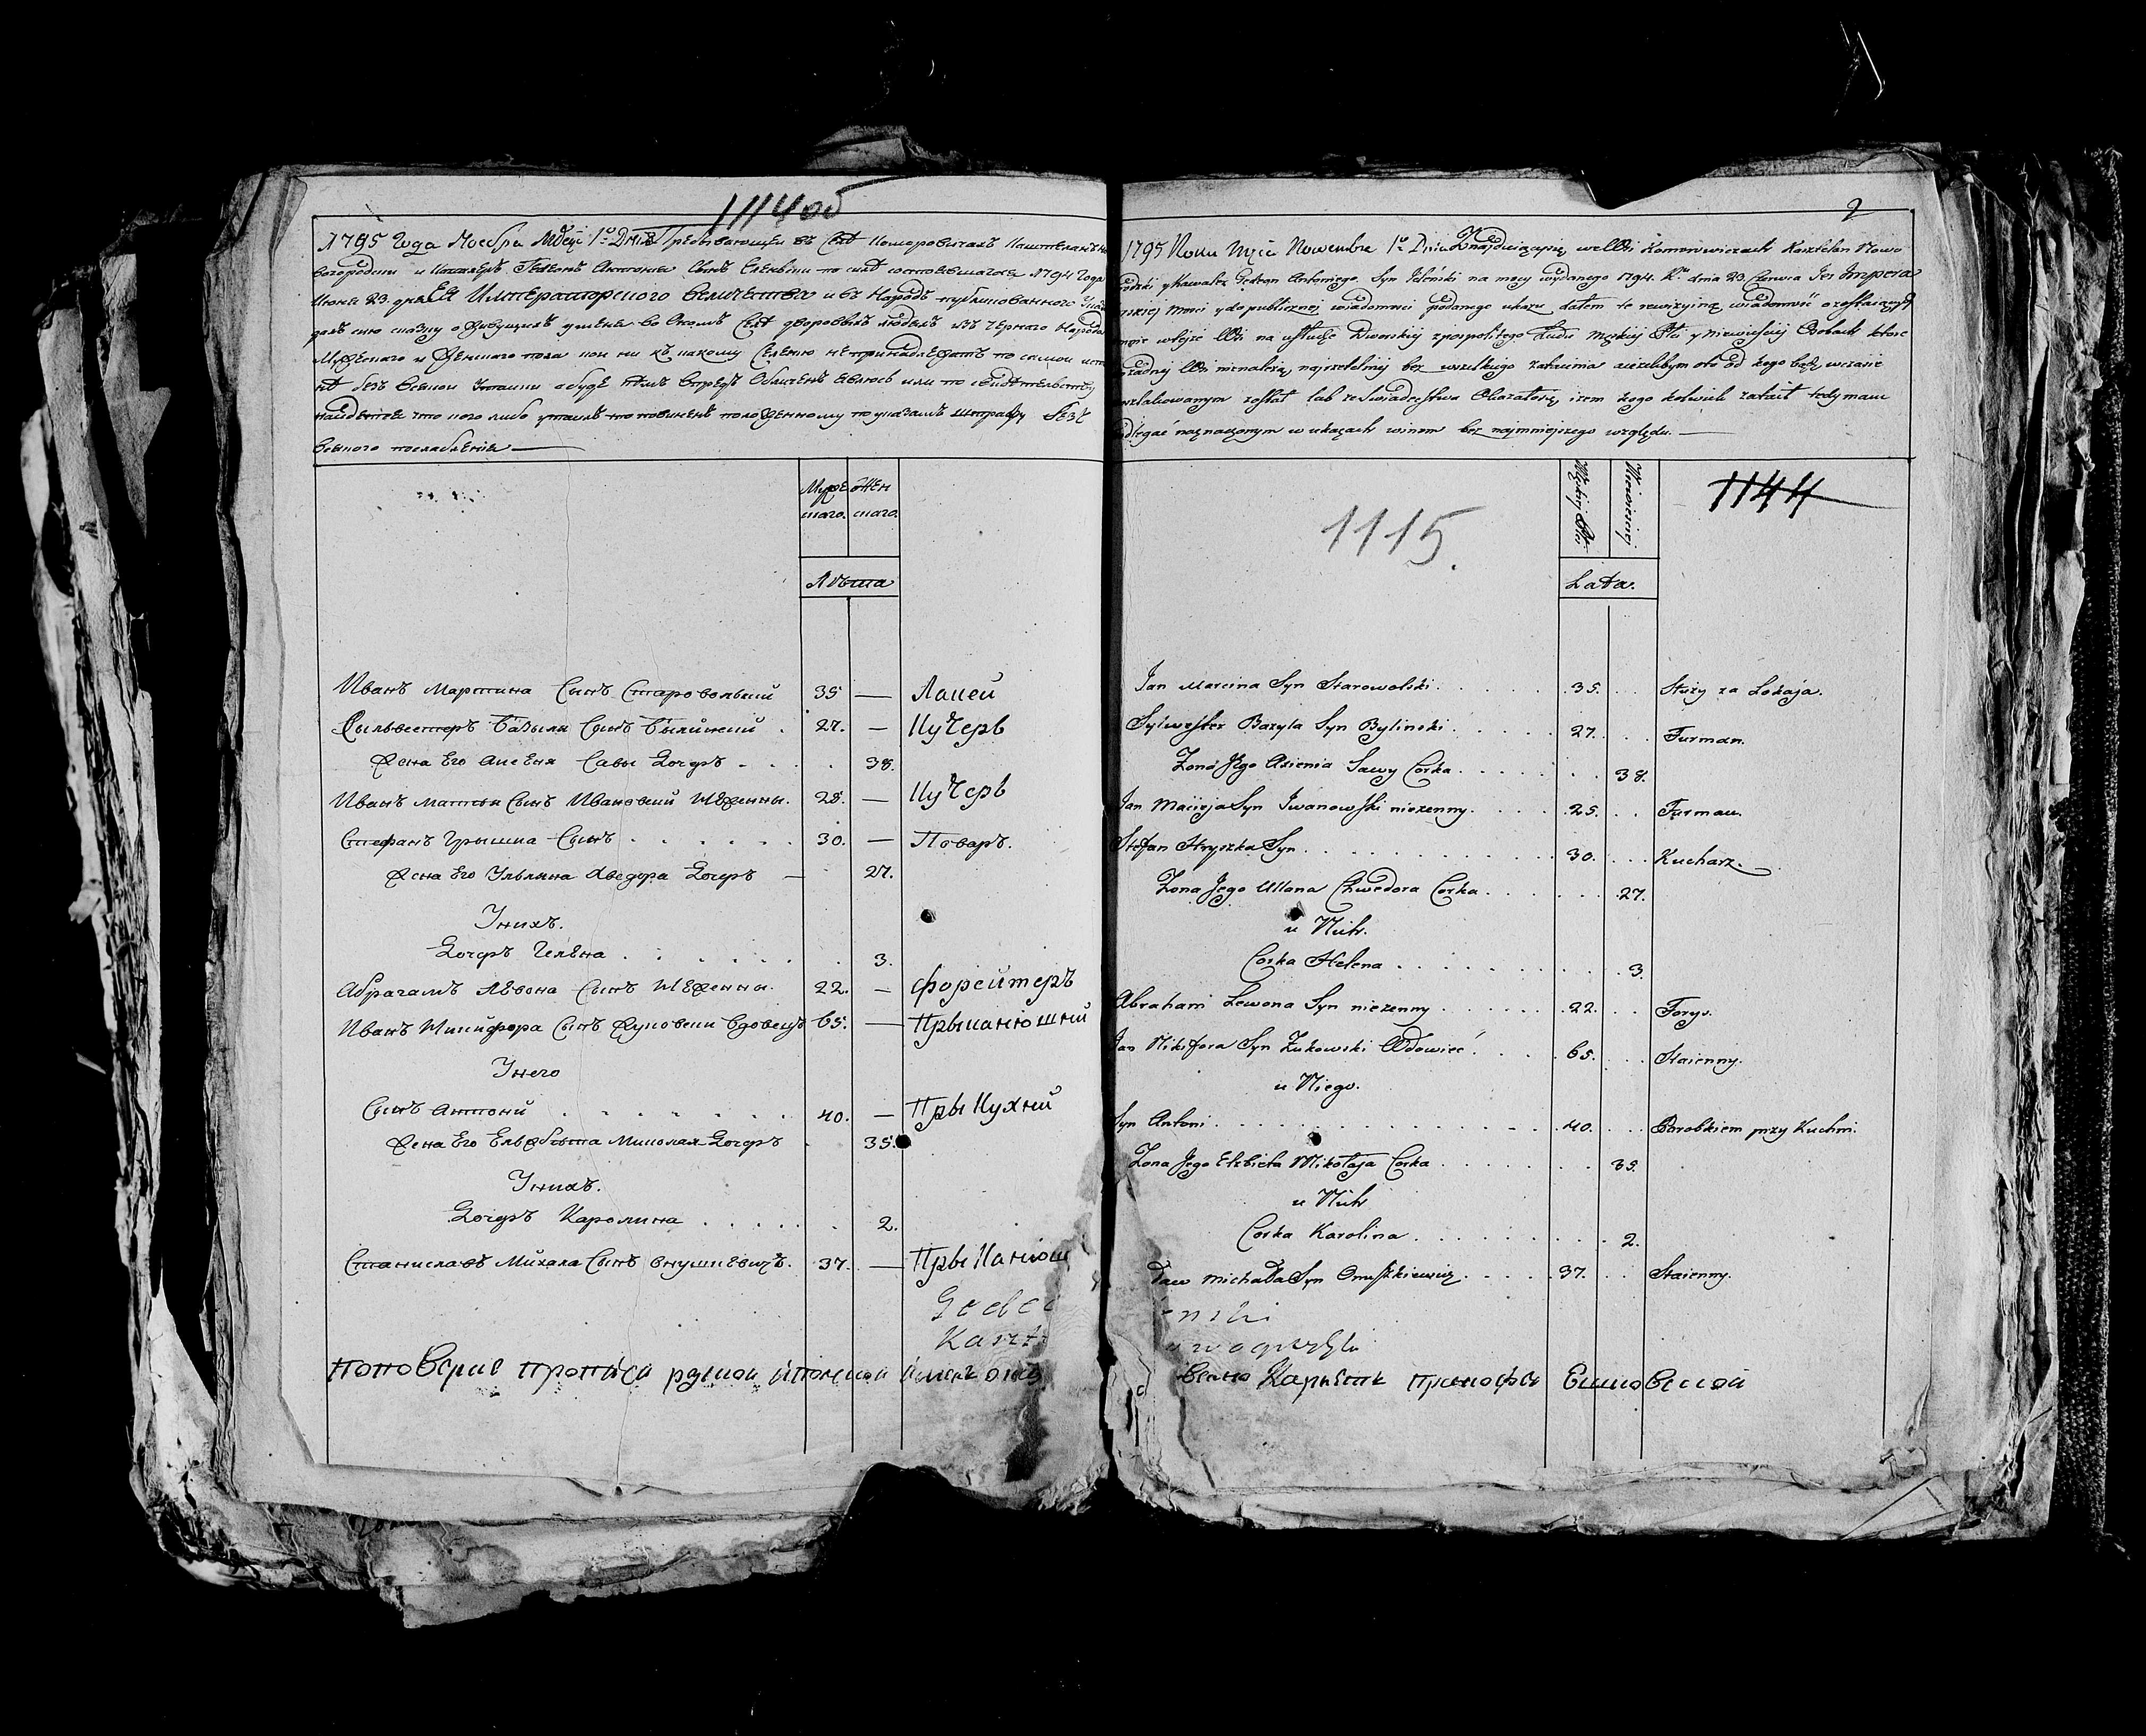 1114об
1795 года Ноебра Мѣсяца 1го Дня Пребывающеи въ Селѣ Коморовичахъ Каштелянъ Но
вогородски и Кавалеръ Гедеонъ Антониа Сынъ Еленьски по силѣ состоевшагося 1794 года
Июня 23. дня Ея Императорского величества и въ Народъ публикованного
далъ сию сказку о живущихъ у меня во ономъ Селѣ дворовыхъ людехъ изъ чернаго Народа
Мужеского и Женского пола кои ни къ какому Селению непринадлежатъ по самои исти
нѣ безъ всякои Утаики а буде кѣмъ впредъ Обличенъ явлюсь или по свидѣтельству
найдется что кого либо утаилъ то повиненъ положенному по указамъ штрафу безъ
всякого послабления
Муже скаго.
Жен скаго.
Лѣта
Иванъ Мартина Сынъ Старовольский 35 — Лакей
Сыльвестеръ Базыля Сынъ Былинский . 27. — Кучеръ
Жена Его Аксеня Савы Дочеръ . . . 38.
Иванъ Матея Сынъ Ивановский Нѣженны. 25. — Кучеръ
Стефанъ Грышка Сынъ . . . . . . 30. — Поваръ.
Жена Его Ульяна Хведора Дочеръ — . 27.
Унихъ.
Дочеръ Гелѣна . . . . . . . 3.
Абрагамъ Лѣвона Сынъ Нѣженны. 22. — форейтеръ
Иванъ Никифора Сынъ Жуковски Вдовецъ 65. — Прыканюшний
Унего
Сынъ Антони . . . . . . . 40. — Пры Кухний
Жена Его Ельжбѣта Миколая Дочеръ . 35.
Унихъ.
Дочеръ Каролина . . . . . . 2.
Станиславъ Михала Сынъ Внушкевичъ. 37. — Пры Канюш
Kaszt
2
1795 Roku Mca Nowembra 1go Dnia Znajdujący się we Wsi Komorowiczach Kasztelan Nowo
gródzki y Kawaler Gedeon Antoniego Syn Jeleński na mocy wydanego 1794. Ru dnia 23 Czerwca Jey Impera
torskiej Mosci y do publicznej wiadomości podanego ukazu dałem te rewizyjną wiadomość o zostaiących
w teyże Wsi na usłudze Dworskiej z pospolitego Ludu Męskiej Płci y Niewieściej Osobach ktore
żadnej Wsi nienależą najrzetelniej bez wszelkiego zataienia a ieżelibym oto od kogo był w czasie
zostal lub ze świadectwa Okazałoby się zem kogo kolwiek zataił tedy mam
uledz naznaczonym w ukazach winom bez najmniejszego względu. —
1115.
Męskiej Płci
Niewieściej
1144
Lata.
Jan Marcina Syn Starowolski . . . . . .35. . . Służy za Lokaja.
Sylwester Bazyla Syn Bylinski . . . . . 27. . . Furman.
Zona Jego Axienia Sawy Corka . . . . . . . 38.
Jan Macieja Syn Iwanowski niezenny. . . . .25. . . Furman.
Stefan Hryszka Syn . . . . . . . . . . 30. . . Kucharz.
Zona Jego Ullana Chwedora Corka . . . . . . .27.
u Nich.
Corka Helena . . . . . . . . . . 3.
Abraham Lewona Syn niezenny . . . . . .22. . . Forys.
Jan Nikifora Syn Żukowski Wdowiec . . . . 65. . . Staienny.
u Niego.
Syn Antoni . . . . . . . . . . . . .40. . . Parobkiem przy Kuchni.
Zona Jego Elzbieta Mikołaja Corka . . . . . . . 35.
u Nich
Corka Karolina . . . . . . . . . . 2.
sław Michała Syn Onuszkiewicz . . . . 37. . . Staienny.